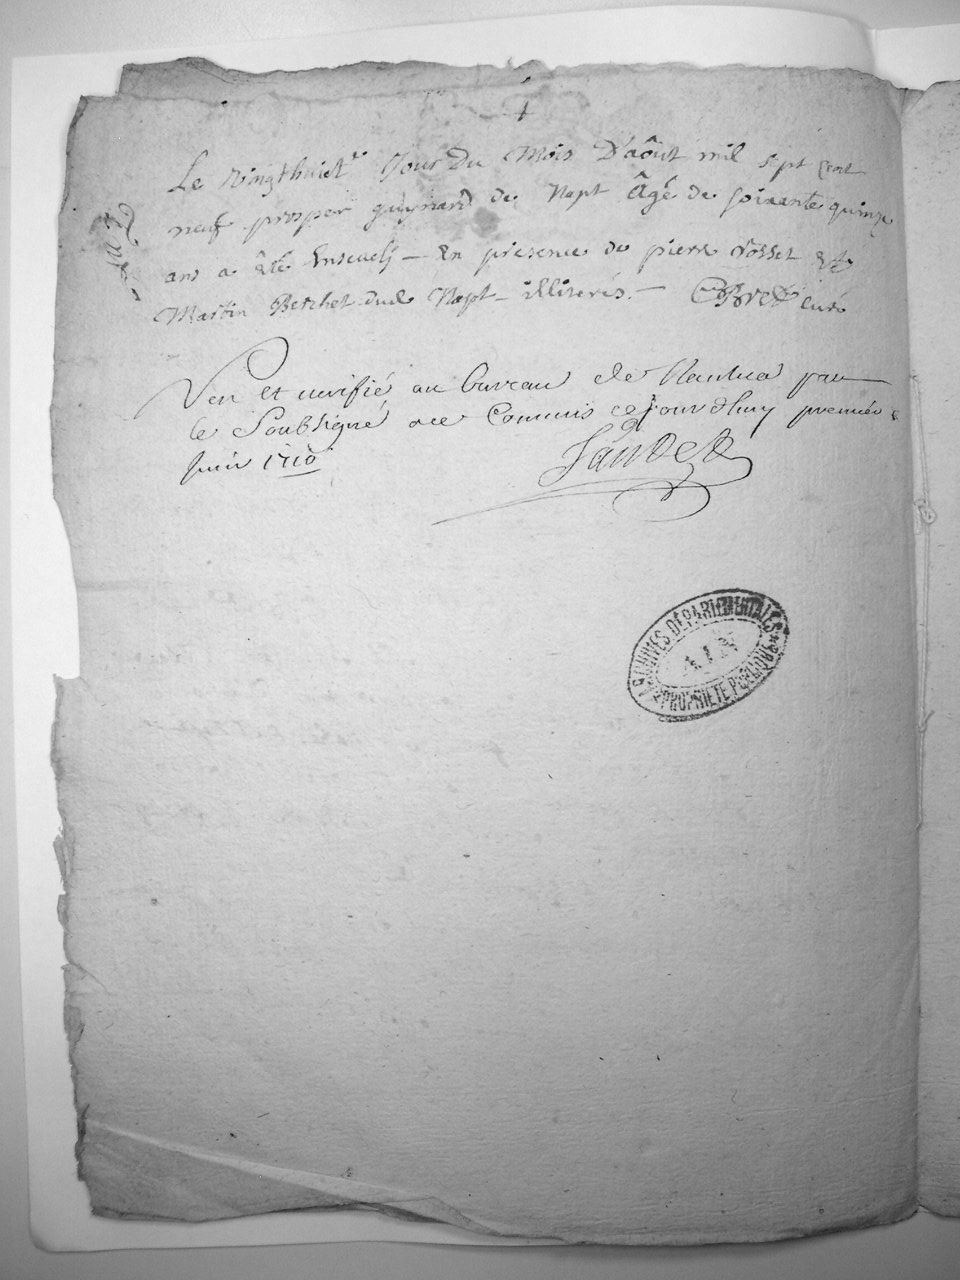 Le vingthuict.e Jour du Mois D'aôut mil sept cent
neuf prosper guynard de Napt Âgé de soixante quinze
ans a été Enseuely – En présence de pierre rosset Et
Martin Berchet dud. Napt – illiterés. – curé
Veu et verifié au bureau de Nantua par
le Soubsigné a ce Commis ce jourdhuy premier
Juin 1710
ARCHIVES DÉPARTEMENTALES
AIN
PROPRIÉTÉ PUBLIQUE